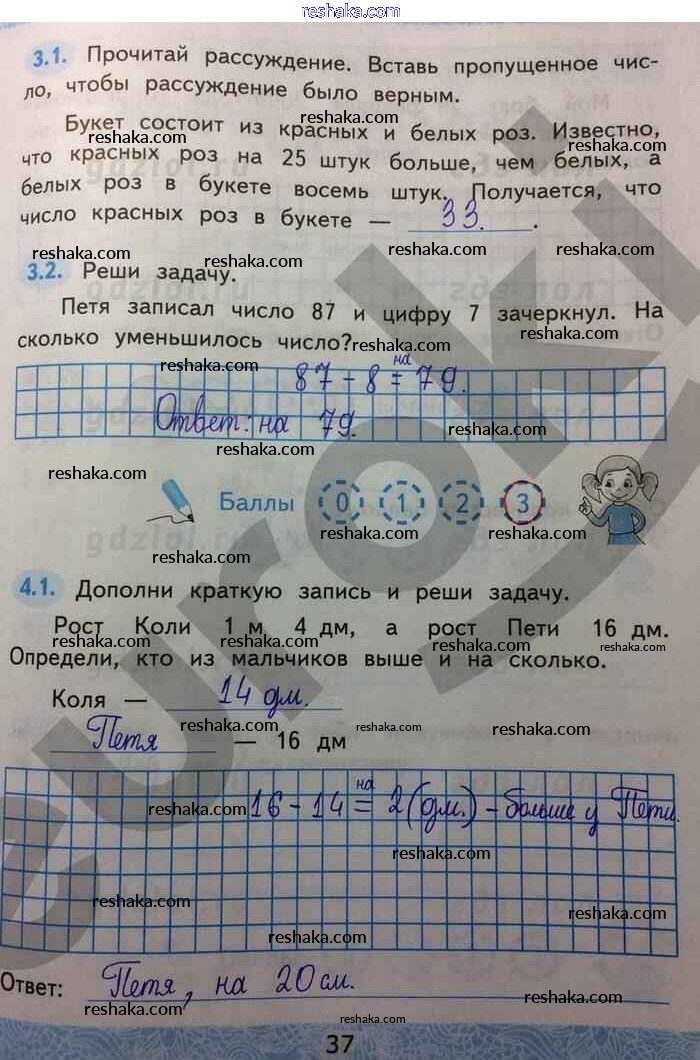 reshaka.com
3.1. Прочитай рассуждение. Вставь пропущенное чис-
ло, чтобы рассуждение было верным.
reshaka.com
Букет состоит из красных и белых роз. Известно,
reshaka.com reshaka.com
что красных роз на 25 штук больше, чем белых, а
reshaka.com reshaka.com
белых роз в букете восемь штук. Получается, что
reshaka.com
число красных роз в букете — 33.
reshaka.com reshaka.com reshaka.com
3.2. Реши задачу.
reshaka.com reshaka.com
Петя записал число 87 и цифру 7 зачеркнул. На
reshaka.com
сколько уменьшилось число?
reshaka.com
reshaka.com reshaka.com
87 - 8 = на 79.
reshaka.com
Ответ: на 79.
reshaka.com reshaka.com
reshaka.com reshaka.com
Баллы 0 1 2 3
reshaka.com reshaka.com
reshaka.com reshaka.com
4.1. Дополни краткую запись и реши задачу.
reshaka.com
Рост Коли 1 м 4 дм, а рост Пети 16 дм.
reshaka.com reshaka.com reshaka.com
Определи, кто из мальчиков выше и на сколько.
reshaka.com
Коля — 14 дм.
reshaka.com reshaka.com reshaka.com
Петя — 16 дм
reshaka.com reshaka.com
16 - 14 = на 2 (дм.) - больше у Пети.
reshaka.com reshaka.com
reshaka.com
reshaka.com reshaka.com
reshaka.com
Ответ: Петя, на 20 см.
reshaka.com
reshaka.com reshaka.com
37